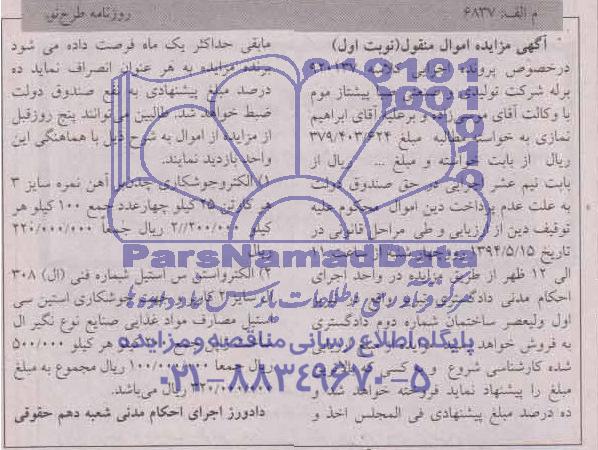 م الف: ۶۸۳۷
روزنامه طرح نو
آگهی مزایده اموال منقول(نوبت اول)
درخصوص پرونده اجرایی کلاسه
برله شرکت تولیدی و صنعتی پیشتاز موم
با وکالت آقای موسی زاده و برعلیه آقای ابراهیم
نمازی به خواسته مطالبه مبلغ ۳۷۹/۴۰۳/۶۲۴
ریال از بابت خواسته و مبلغ ... ریال از
بابت نیم عشر اجرایی در حق صندوق دولت
به علت عدم پرداخت دین اموال محکوم علیه
توقیف دین از ارزیابی و طی مراحل قانونی در
تاریخ ۱۳۹۴/۵/۱۵ روز پنج شنبه از ساعت ۱۱
الی ۱۲ ظهر از طریق مزایده در واحد اجرای
احکام مدنی دادگستری واقع در
اول ولیعصر ساختمان شماره دوم دادگستری
به فروش خواهد رسید مزایده از مبلغ ارزیابی
شده کارشناسی شروع و هر کسی که بالاترین
مبلغ را پیشنهاد نماید فروخته خواهد شد و
ده درصد مبلغ پیشنهادی فی المجلس اخذ و
مابقی حداکثر یک ماه فرصت داده می شود
برنده مزایده به هر عنوان انصراف نماید ده
درصد مبلغ پیشنهادی به نفع صندوق دولت
ضبط خواهد شد. طالبین می توانند پنج روزقبل
از مزایده از اموال به شرح ذیل با هماهنگی این
واحد بازدید نمایند.
۱) الکتروجوشکاری چدنی آهن نمره سایز ۳
هر کارتن ۲۵ کیلو چهارعدد جمع ۱۰۰ کیلو هر
کیلو ۲/۲۰۰/۰۰۰ ریال جمعا ۲۲۰/۰۰۰/۰۰۰
ریال
۲) الکترواستیل شماره فنی (ال) ۳۰۸
ال سایز ۲ کارتن جهت جوشکاری استین سی
استیل مصارف مواد غذایی صنایع نوع نگیر ال
کیلو هر کیلو ۵۰۰/۰۰۰
ریال جمعا ۱۰۰/۰۰۰/۰۰۰ ریال مجموع به مبلغ
۳۲۰/۰۰۰/۰۰۰ ریال می باشد.
دادورز اجرای احکام مدنی شعبه دهم حقوقی
ParsNamadData
پایگاه اطلاع رسانی مناقصه و مزایده
۰۲۱-۸۸۳۴۹۶۷۰-۵